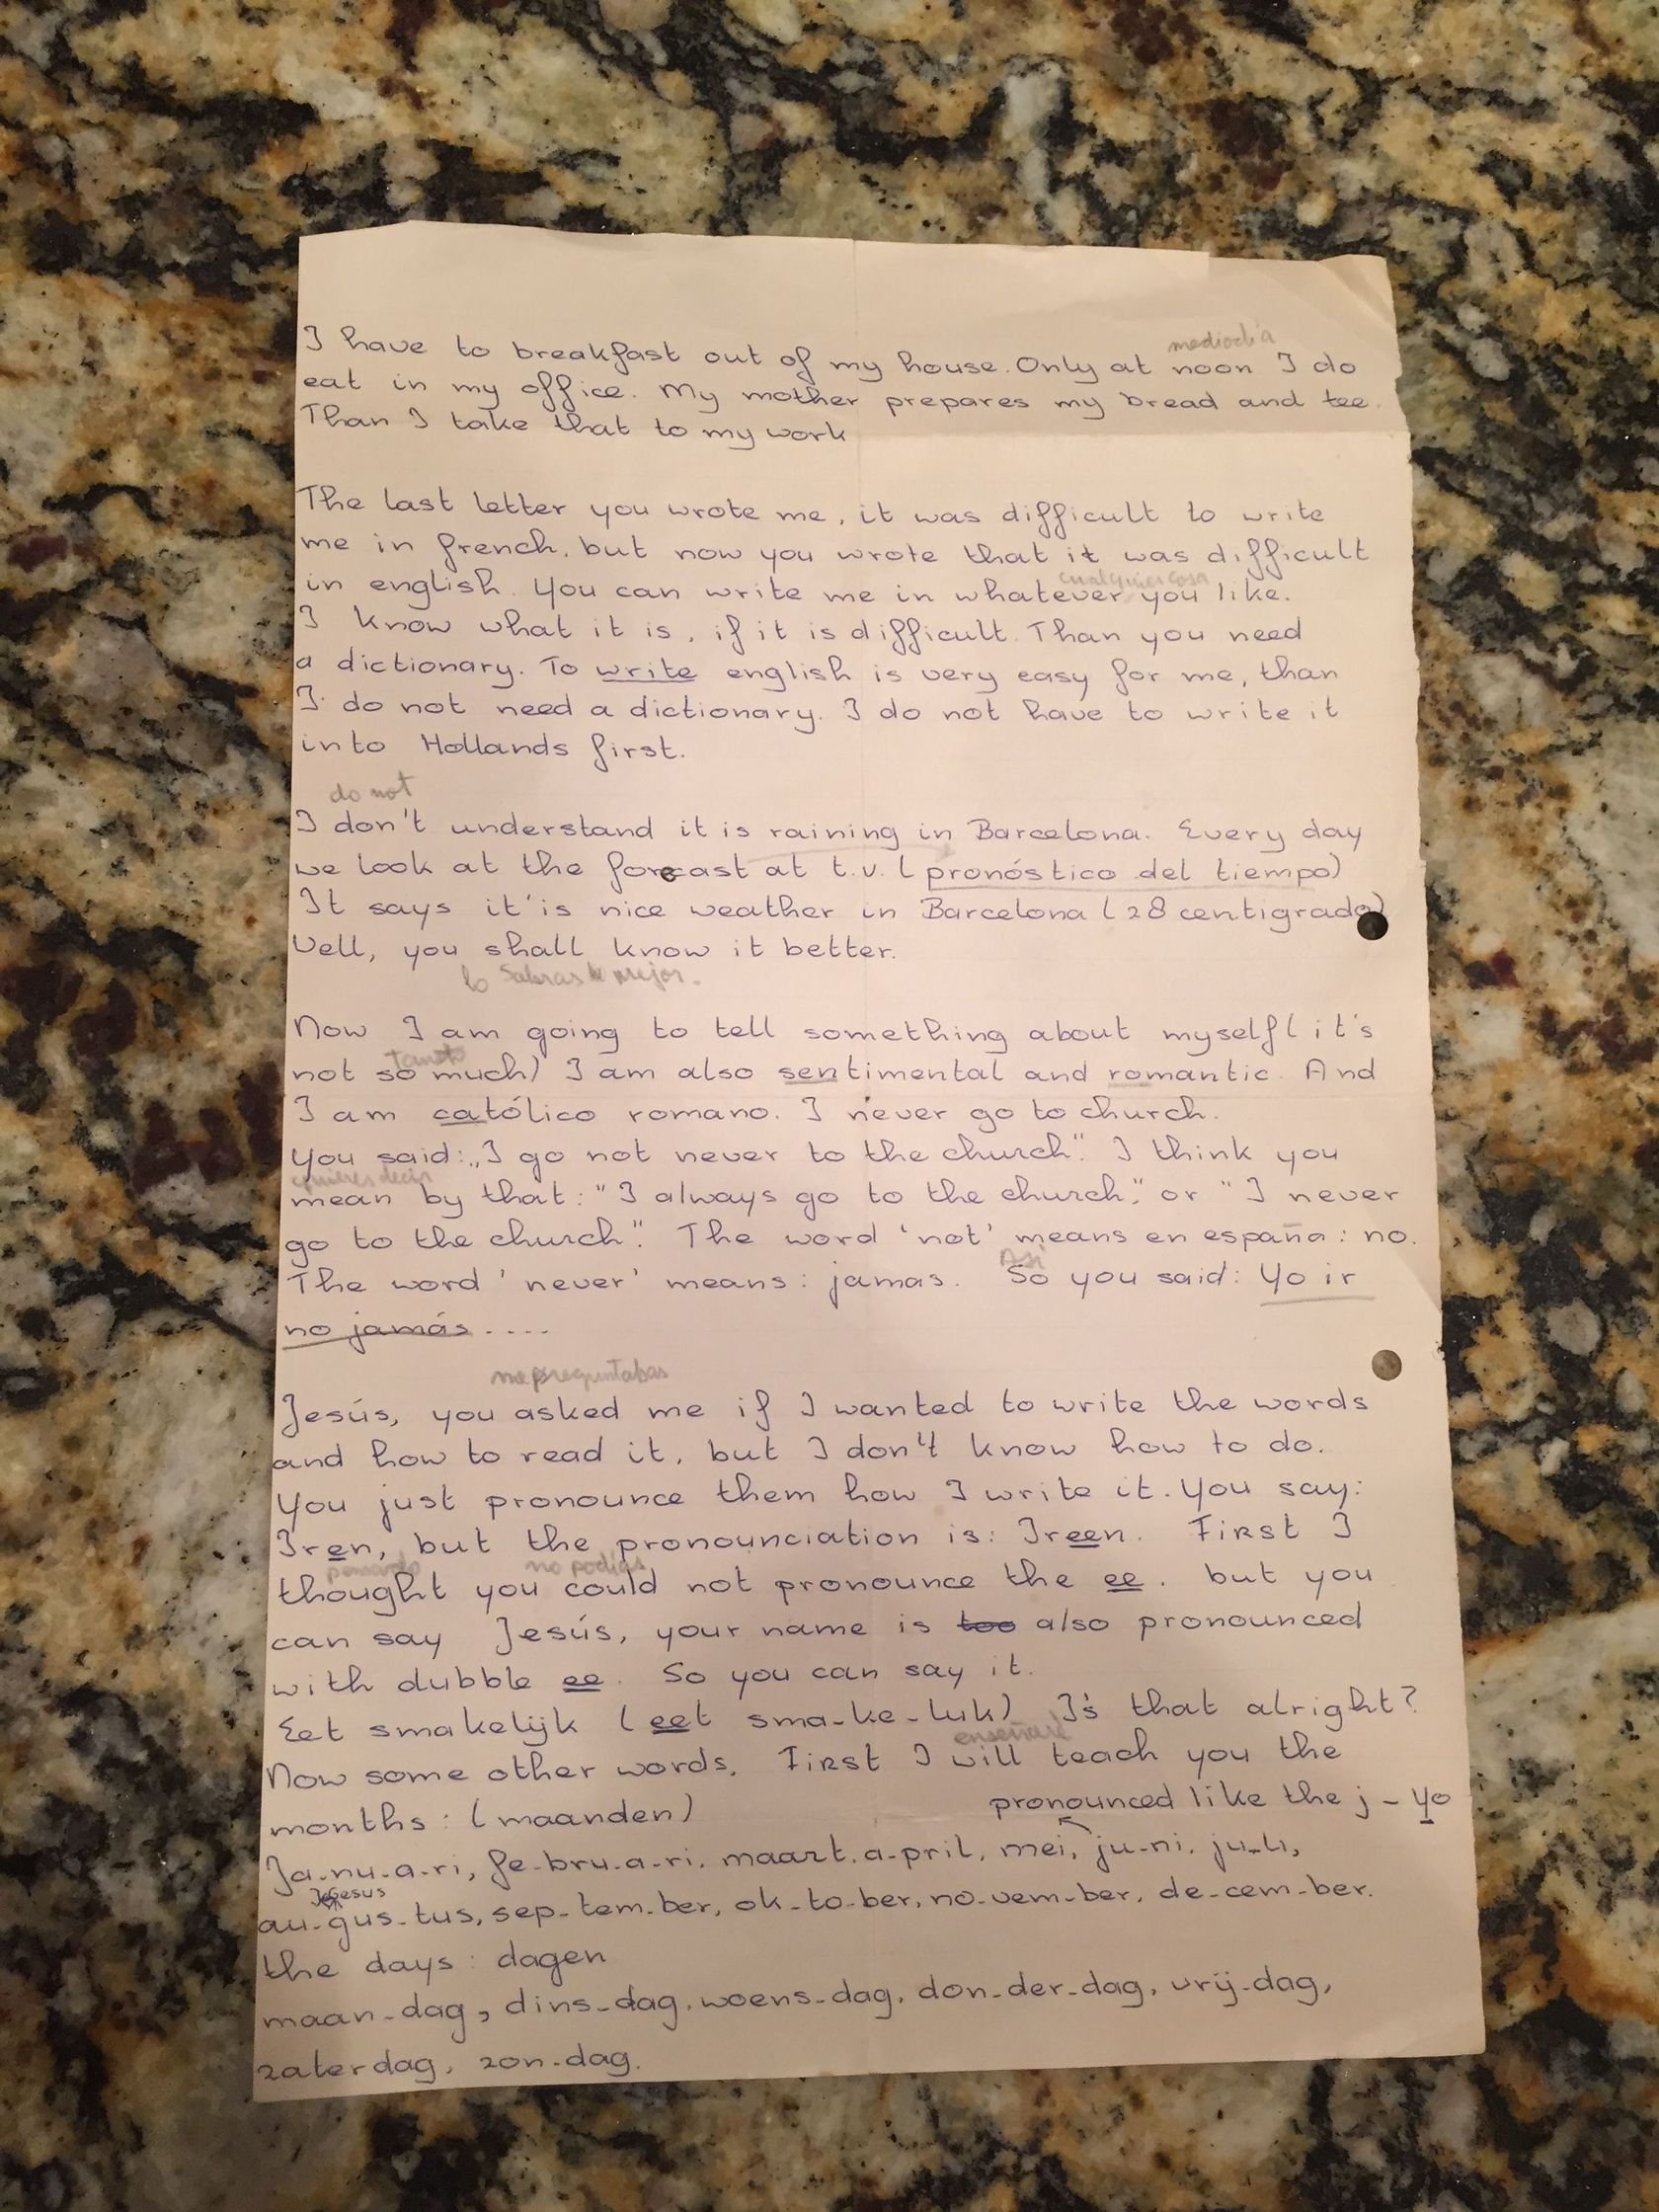 mediodia
I have to breakfast out of my house. Only at noon I do
eat in my office. My mother prepares my bread and tee.
Than I take that to my work
The last letter you wrote me, it was difficult to write
me in french, but now you wrote that it was difficult
cualquier cosa
in english. You can write me in whatever you like.
I know what it is, if it is difficult. Than you need
a dictionary. To write english is very easy for me, than
I do not need a dictionary. I do not have to write it
into Hollands first.
do not
I don't understand it is raining in Barcelona. Every day
we look at the forecast at t.v. (pronóstico del tiempo)
It says it is nice weather in Barcelona (28 centigrado)
Well, you shall know it better.
lo Sabras mejor.
Now I am going to tell something about myself (it's
Tanto
not so much) I am also sentimental and romantic. And
I am católico romano. I never go to church.
You said: „I go not never to the church". I think you
quieres decir
mean by that: "I always go to the church", or "I never
go to the church". The word 'not' means en españa: no.
Asi
The word 'never' means: jamas. So you said: Yo ir
no jamás....
me preguntabas
Jesús, you asked me if I wanted to write the words
and how to read it, but I don't know how to do.
You just pronounce them how I write it. You say:
Iren, but the pronounciation is: Ireen. First I
pensando no podias
thought you could not pronounce the ee. but you
can say Jesús, your name is too also pronounced
with dubble ee. So you can say it.
Eet smakelijk (eet sma-ke-luk) Is that alright?
enseñaré
Now some other words. First I will teach you the
months: (maanden)
pronounced like the j - Yo
Ja-nu-a-ri, fe-bru-a-ri, maart, a-pril, mei, ju-ni, ju-li,
Jesus
au-gus-tus, sep-tem-ber, ok-to-ber, no-vem-ber, de-cem-ber.
the days: dagen
maan-dag, dins-dag, woens-dag, don-der-dag, vrij-dag,
zaterdag, zon-dag.